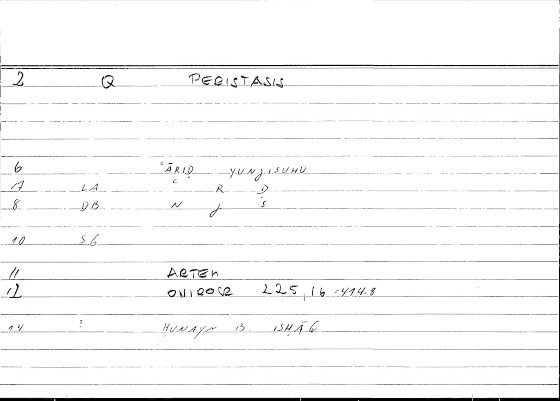 2 Q PERISTASIS
6 ʿĀRIḌ YUNǦISUHU
7 LA ʿ R Ḍ
8 DB N Ǧ S
10 SG
11 ARTEM
12 ONIROCR 225,16 = 414.8
14 ? ḤUNAYN B. ISḤĀQ